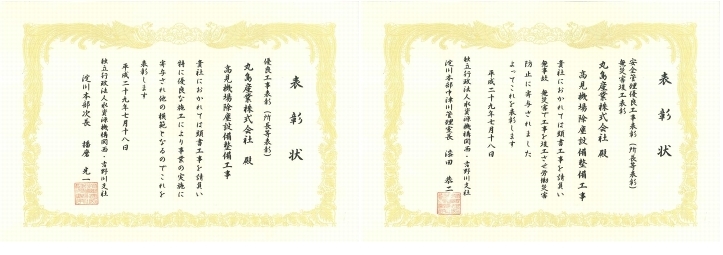 表彰状
優良工事表彰（所長等表彰）
丸島産業株式会社 殿
高見機場除塵設備整備工事
貴社におかれては頭書工事を請負い
特に優良な施工により事業の実施に
寄与され他の模範となるのでこれを
表彰します
平成二十九年七月十八日
独立行政法人水資源機構関西・吉野川支社
淀川本部次長 播磨 光一
表彰状
安全管理優良工事表彰（所長等表彰）
無災害竣工表彰
丸島産業株式会社 殿
高見機場除塵設備整備工事
貴社におかれては頭書工事を請負い
無事故、無災害で工事を竣工させ労働災害
防止に寄与されました
よってこれを表彰します
平成二十九年七月十八日
独立行政法人水資源機構関西・吉野川支社
淀川本部中津川管理室長 恭二